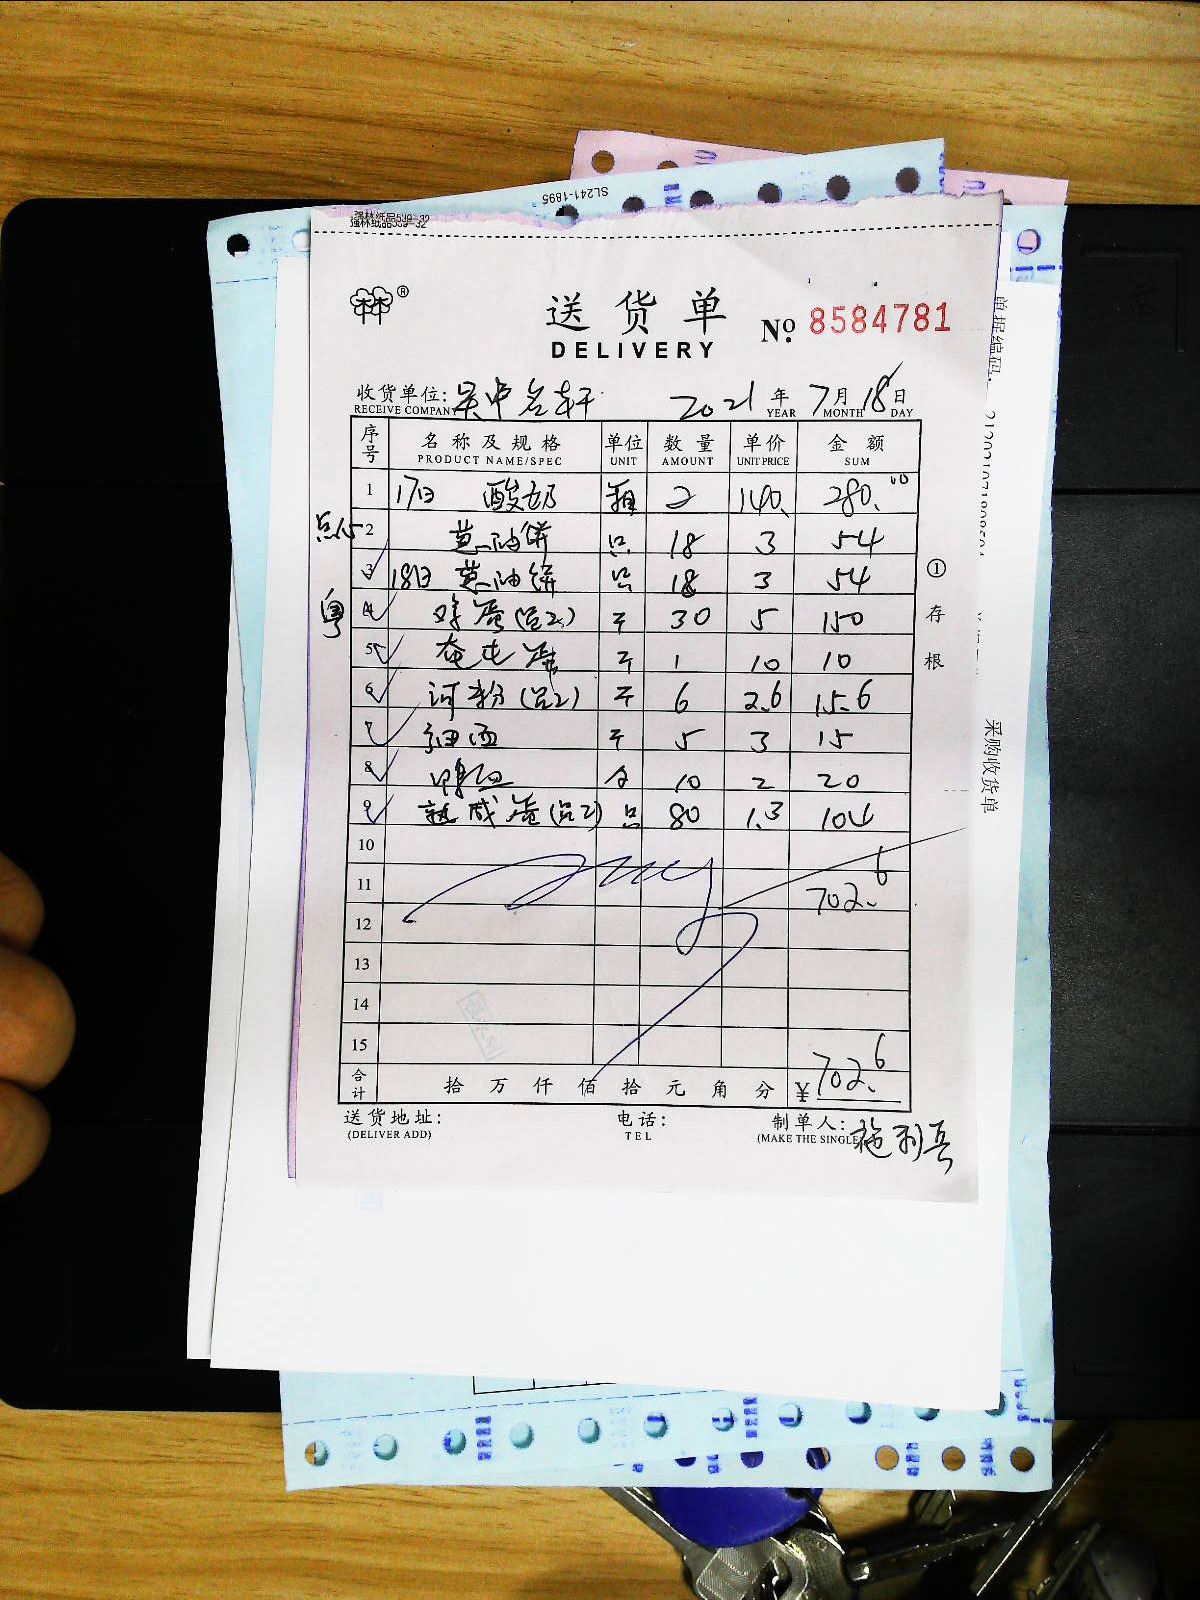 SL241-1895
强林纸品539-32
林®
送货单
DELIVERY
№ 8584781
收货单位: 吴中名轩 2021年7月18日
RECEIVE COMPANY YEAR MONTH DAY
序号 名称及规格 单位 数量 单价 金额
PRODUCT NAME/SPEC UNIT AMOUNT UNIT PRICE SUM
1 17日 酸奶 箱 2 140. 280.00
点心 2 葱油饼 只 18 3 54
3 18日 葱油饼 只 18 3 54
粤 4 鸡蛋(员2) 斤 30 5 150
5 斤 1 10 10
6 河粉(员2) 斤 6 2.6 15.6
7 细面 斤 5 3 15
8 鸭血 10 2 20
9 熟咸蛋(员2) 只 80 1.3 104
10
11 702.6
12
13
14
15
合计 拾万仟佰拾元角分 ¥702.6
送货地址: 电话: 制单人: 施利兵
(DELIVER ADD) TEL (MAKE THE SINGLE
①存根
单据编码:
采购收货单